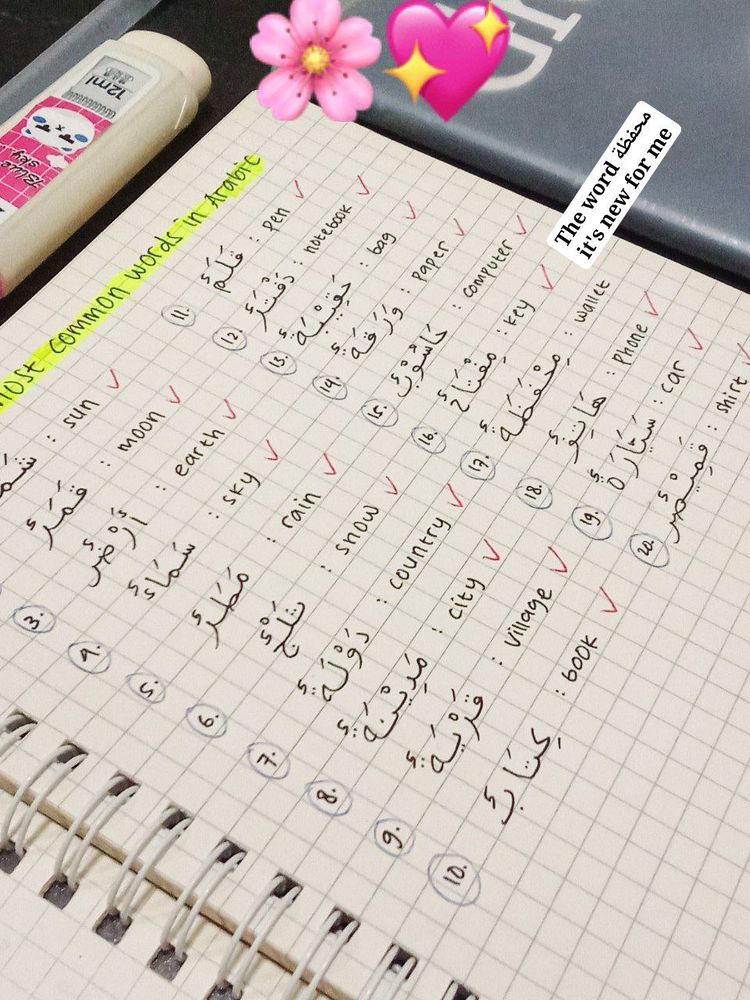 12ml
Blue
sky
The word محفظة
it's new for me
Most common words in Arabic
: sun
قَمَرٌ : moon
3. أَرْضٌ : earth
4. سَمَاءٌ : sky
5. مَطَرٌ : rain
6. ثَلْجٌ : snow
7. دَوْلَةٌ : country
8. مَدِيْنَةٌ : city
9. قَرْيَةٌ : village
10. كِتَابٌ : book
11. قَلَمٌ : pen
12. دَفْتَرٌ : notebook
13. حَقِيْبَةٌ : bag
14. وَرَقَةٌ : paper
15. حَاسُوْبٌ : computer
16. مِفْتَاحٌ : key
17. مِحْفَظَةٌ : wallet
18. هَاتِفٌ : phone
19. سَيَّارَةٌ : car
20. قَمِيْصٌ : shirt